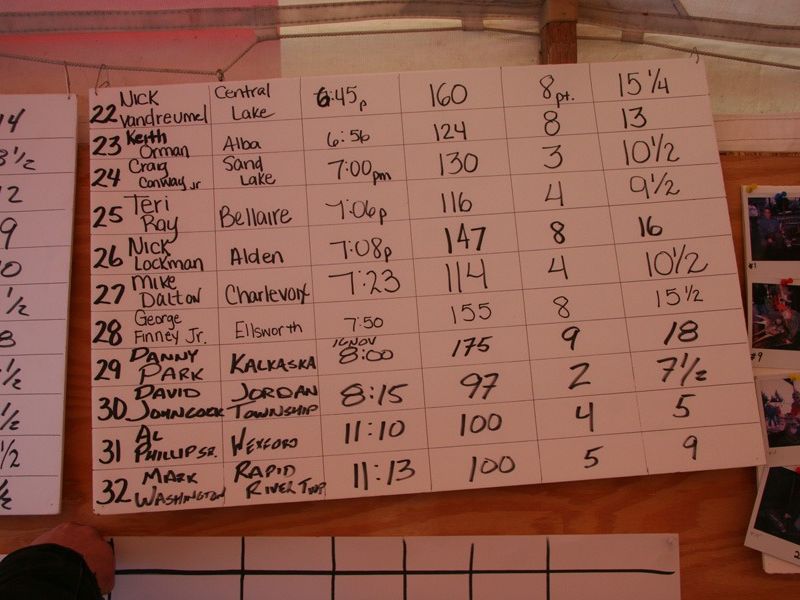 14
3 1/2
12
9
10
1/2
8
1/2
1/2
1/2
1/2
22 Nick Vandreumel Central Lake 6:45p 160 8pt. 15 1/4
23 Keith Orman Alba 6:56 124 8 13
24 Craig Conway Jr Sand Lake 7:00pm 130 3 10 1/2
25 Teri Ray Bellaire 7:06p 116 4 9 1/2
26 Nick Lockman Alden 7:08p 147 8 16
27 Mike Dalton Charlevoix 7:23 114 4 10 1/2
28 George Finney Jr. Ellsworth 7:50 155 8 15 1/2
29 DANNY PARK KALKASKA 16 NOV 8:00 175 9 18
30 DAVID JOHNCOCK JORDAN TOWNSHIP 8:15 97 2 7 1/2
31 AL PHILLIP SR. WEXFORD 11:10 100 4 5
32 MARK WASHINGTON RAPID RIVER TWP 11:13 100 5 9
#9